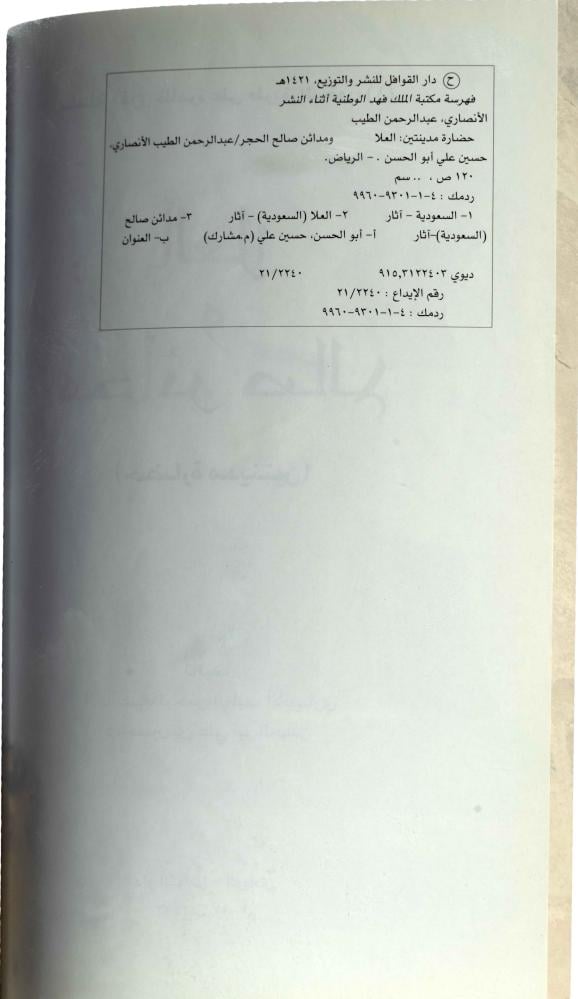 ح دار القوافل للنشر والتوزيع، ١٤٢١هـ
فهرسة مكتبة الملك فهد الوطنية أثناء النشر
الأنصاري، عبدالرحمن الطيب
حضارة مدينتين: العلا ومدائن صالح الحجر/عبدالرحمن الطيب الأنصاري،
حسين علي أبو الحسن . – الرياض.
١٢٠ ص ، .. سم
ردمك : ٤-١-٩٣٠١-٩٩٦٠
١- السعودية - آثار ٢- العلا (السعودية) - آثار ٣- مدائن صالح
(السعودية)-آثار أ- أبو الحسن، حسين علي (م.مشارك) ب- العنوان
ديوي ٩١٥,٣١٢٢٤٠٣ ٢١/٢٢٤٠
رقم الإيداع : ٢١/٢٢٤٠
ردمك : ٤-١-٩٣٠١-٩٩٦٠